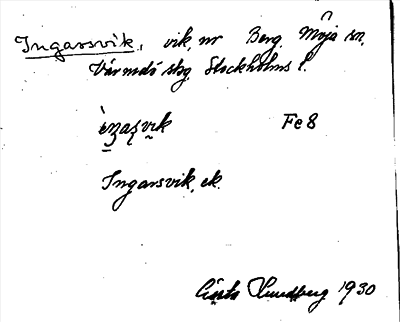 Ingarsvik, vik, nr Berg, Möja sn,
Värmdö skg. Stockholms l.
Fe8
Ingarsvik, ek.
Gösta Lundberg 1930